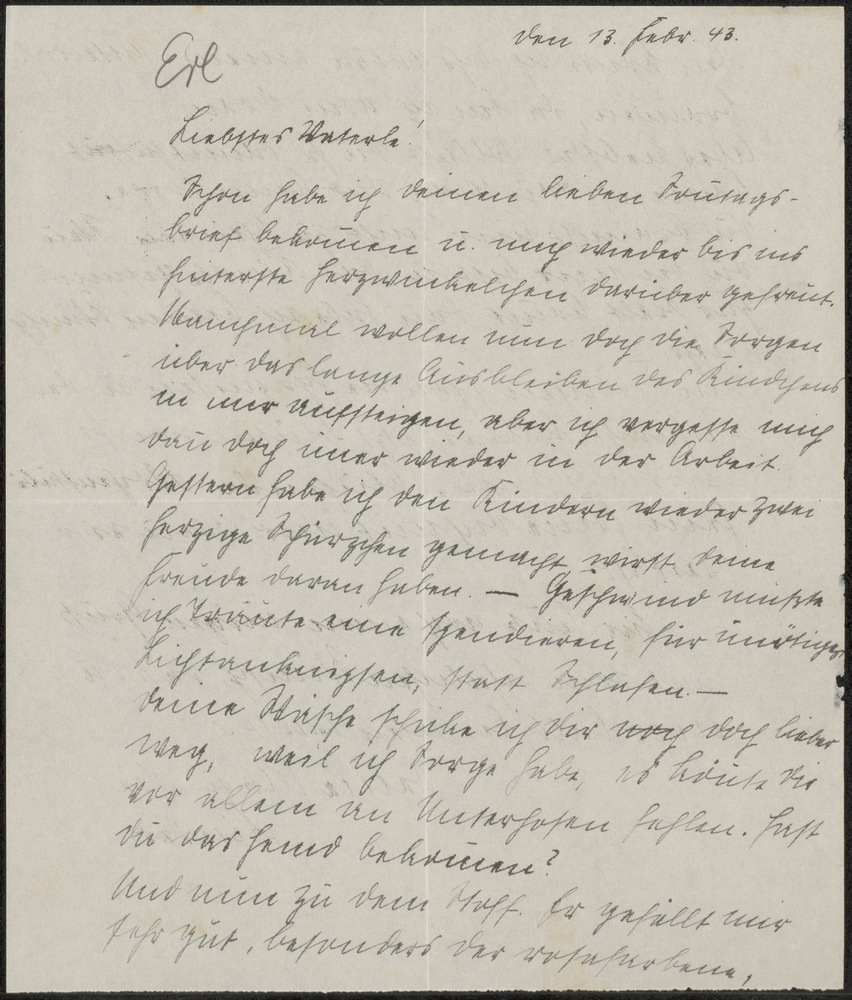 den 13. Febr. 43.
Erl
Liebstes Vaterle!
Schon habe ich deinen lieben Sontags-
brief bekomen u. mich wieder bis ins
hinterste Herzwinkelchen darüber gefreut.
Manchmal wollen nun doch die Sorgen
über das lange Ausbleiben des Kindchens
in mir aufsteigen, aber ich vergesse mich
dan doch imer wieder in der Arbeit.
Gestern habe ich den Kindern wieder zwei
herzige Schürzchen gemacht, wirst deine
Freude daran haben. — Geschwind mußte
ich Traute eine spendieren, für unötiges
Lichtanknipsen, statt Schlafen. —
Deine Wäsche schicke ich dir noch doch lieber
weg, weil ich Sorge habe, es könte dir
vor allem an Unterhosen fehlen. Hast
du das Hemd bekomen?
Und nun zu dem Stoff. Er gefällt mir
sehr gut, besonders der rosafarbene,